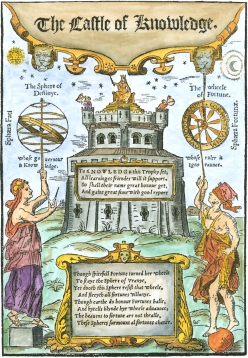 The Castle of Knowledge.
The Sphere of
Destinye.
The wheele
of Fortune.
Sphæra Fati
Sphæra Fortunæ
whose go
vernour
is Know
ledge.
whose ruler is
Ignoraunce.
To KNOWLEDGE is this Trophy set,
All learninges friendes will it support,
So shall their name great honour get,
And gaine great fame with good report.
Though spitefull Fortune turned her wheele
To staye the Sphere of Uranye,
Yet dooth this Sphere resist that wheele,
And fleeyth all fortunes villanye.
Though earthe do honour Fortunes balle,
And bytells blynde hyr wheele advaunce,
The heavens to fortune are not thralle,
These Spheres surmount al fortunes chance.